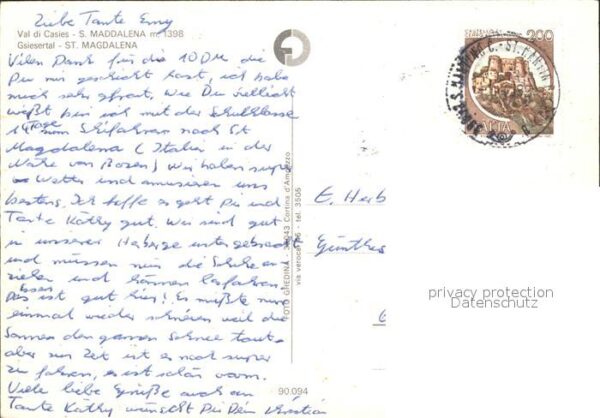 Liebe Tante Emy
Val di Casies - S. MADDALENA m. 1398
Gsiesertal - ST. MAGDALENA
Vielen Dank für die 10 DM die
Du mir geschickt hast, ich habe
mich sehr gefreut. Wie Du vielleicht
weißt bin ich mit der Schulklasse
14 Tage zum Schifahren nach St
Magdalena (Italien in der
Nähe von Bozen) Wir haben super
Wetter und amusieren uns
bestens. Ich hoffe es geht Dir und
Tante Käthy gut. Wir sind gut
in unserer Herberge untergebracht
und müssen nur die Schi an
ziehen und können losfahren
Das ist gut hier! Es müßte nur
einmal wieder schneien weil die
Sonne den ganzen Schnee taut
aber zur Zeit ist es noch super
zu fahren, es ist schön warm.
Viele liebe Grüße auch an
Tante Käthy wünscht Dir Dein Christian
FOTO GHEDINA - 32043 Cortina d'Ampezzo
via verocai 26 - tel. 3505
90.094
200
ITALIA
E. Herb
Günther
privacy protection
Datenschutz